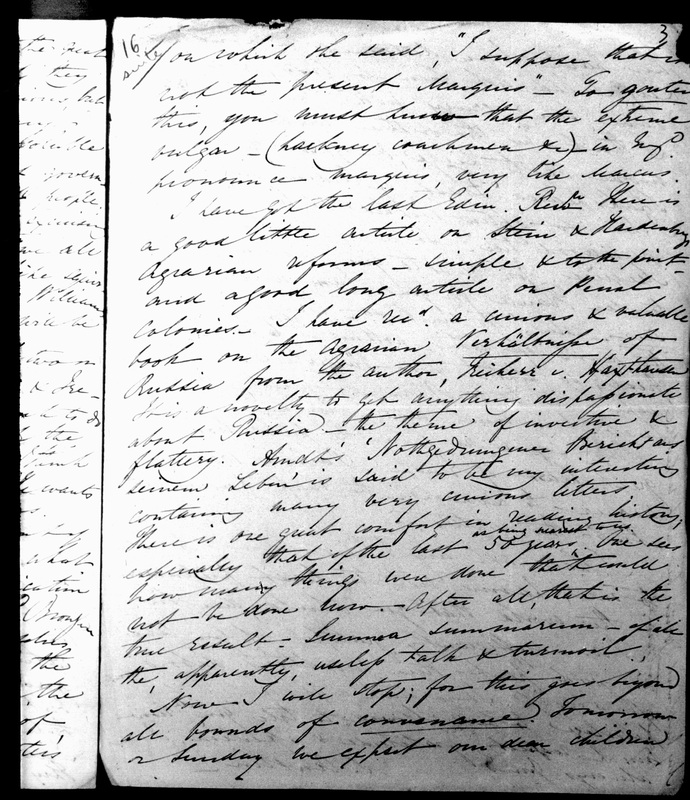 the
they
but
possible
govern
people
opinion
all
like
William
will be
two or
& Ire-
the
wants
what
the
the
of
3
16
you which she said, "I suppose that is
not the present Marquis" — To gouter
this, you must know that the extreme
vulgar — (hackney coachmen &c) — in Engd.
pronounce marquis, very like Marcus.
I have got the last Edin. Revw. There is
a good little article on Stein & Hardenbergs
Agrarian reforms — simple & to the point —
and a good long article on Penal
Colonies. — I have recd. a curious & valuable
book on the Agrarian Verhältnisse of
Russia from the author, Freiherr v. Haxthausen
It is a novelty to get anything dispassionate
about Russia — the theme of invective &
flattery. Arndt's 'Nothgedrungener Bericht aus
seinem Leben' is said to be very interesting
containing many very curious letters.
There is one great comfort in reading history,
as being nearest to us
especially that of the last 50 years. One sees
how many things were done that could
not be done now. — After all, that is the
true result — Summa summarum — of all
the, apparently, useless talk & turmoil.
Now I will stop; for this goes beyond
all bounds of convenance. Tomorrow
or Sunday we expect our dear children